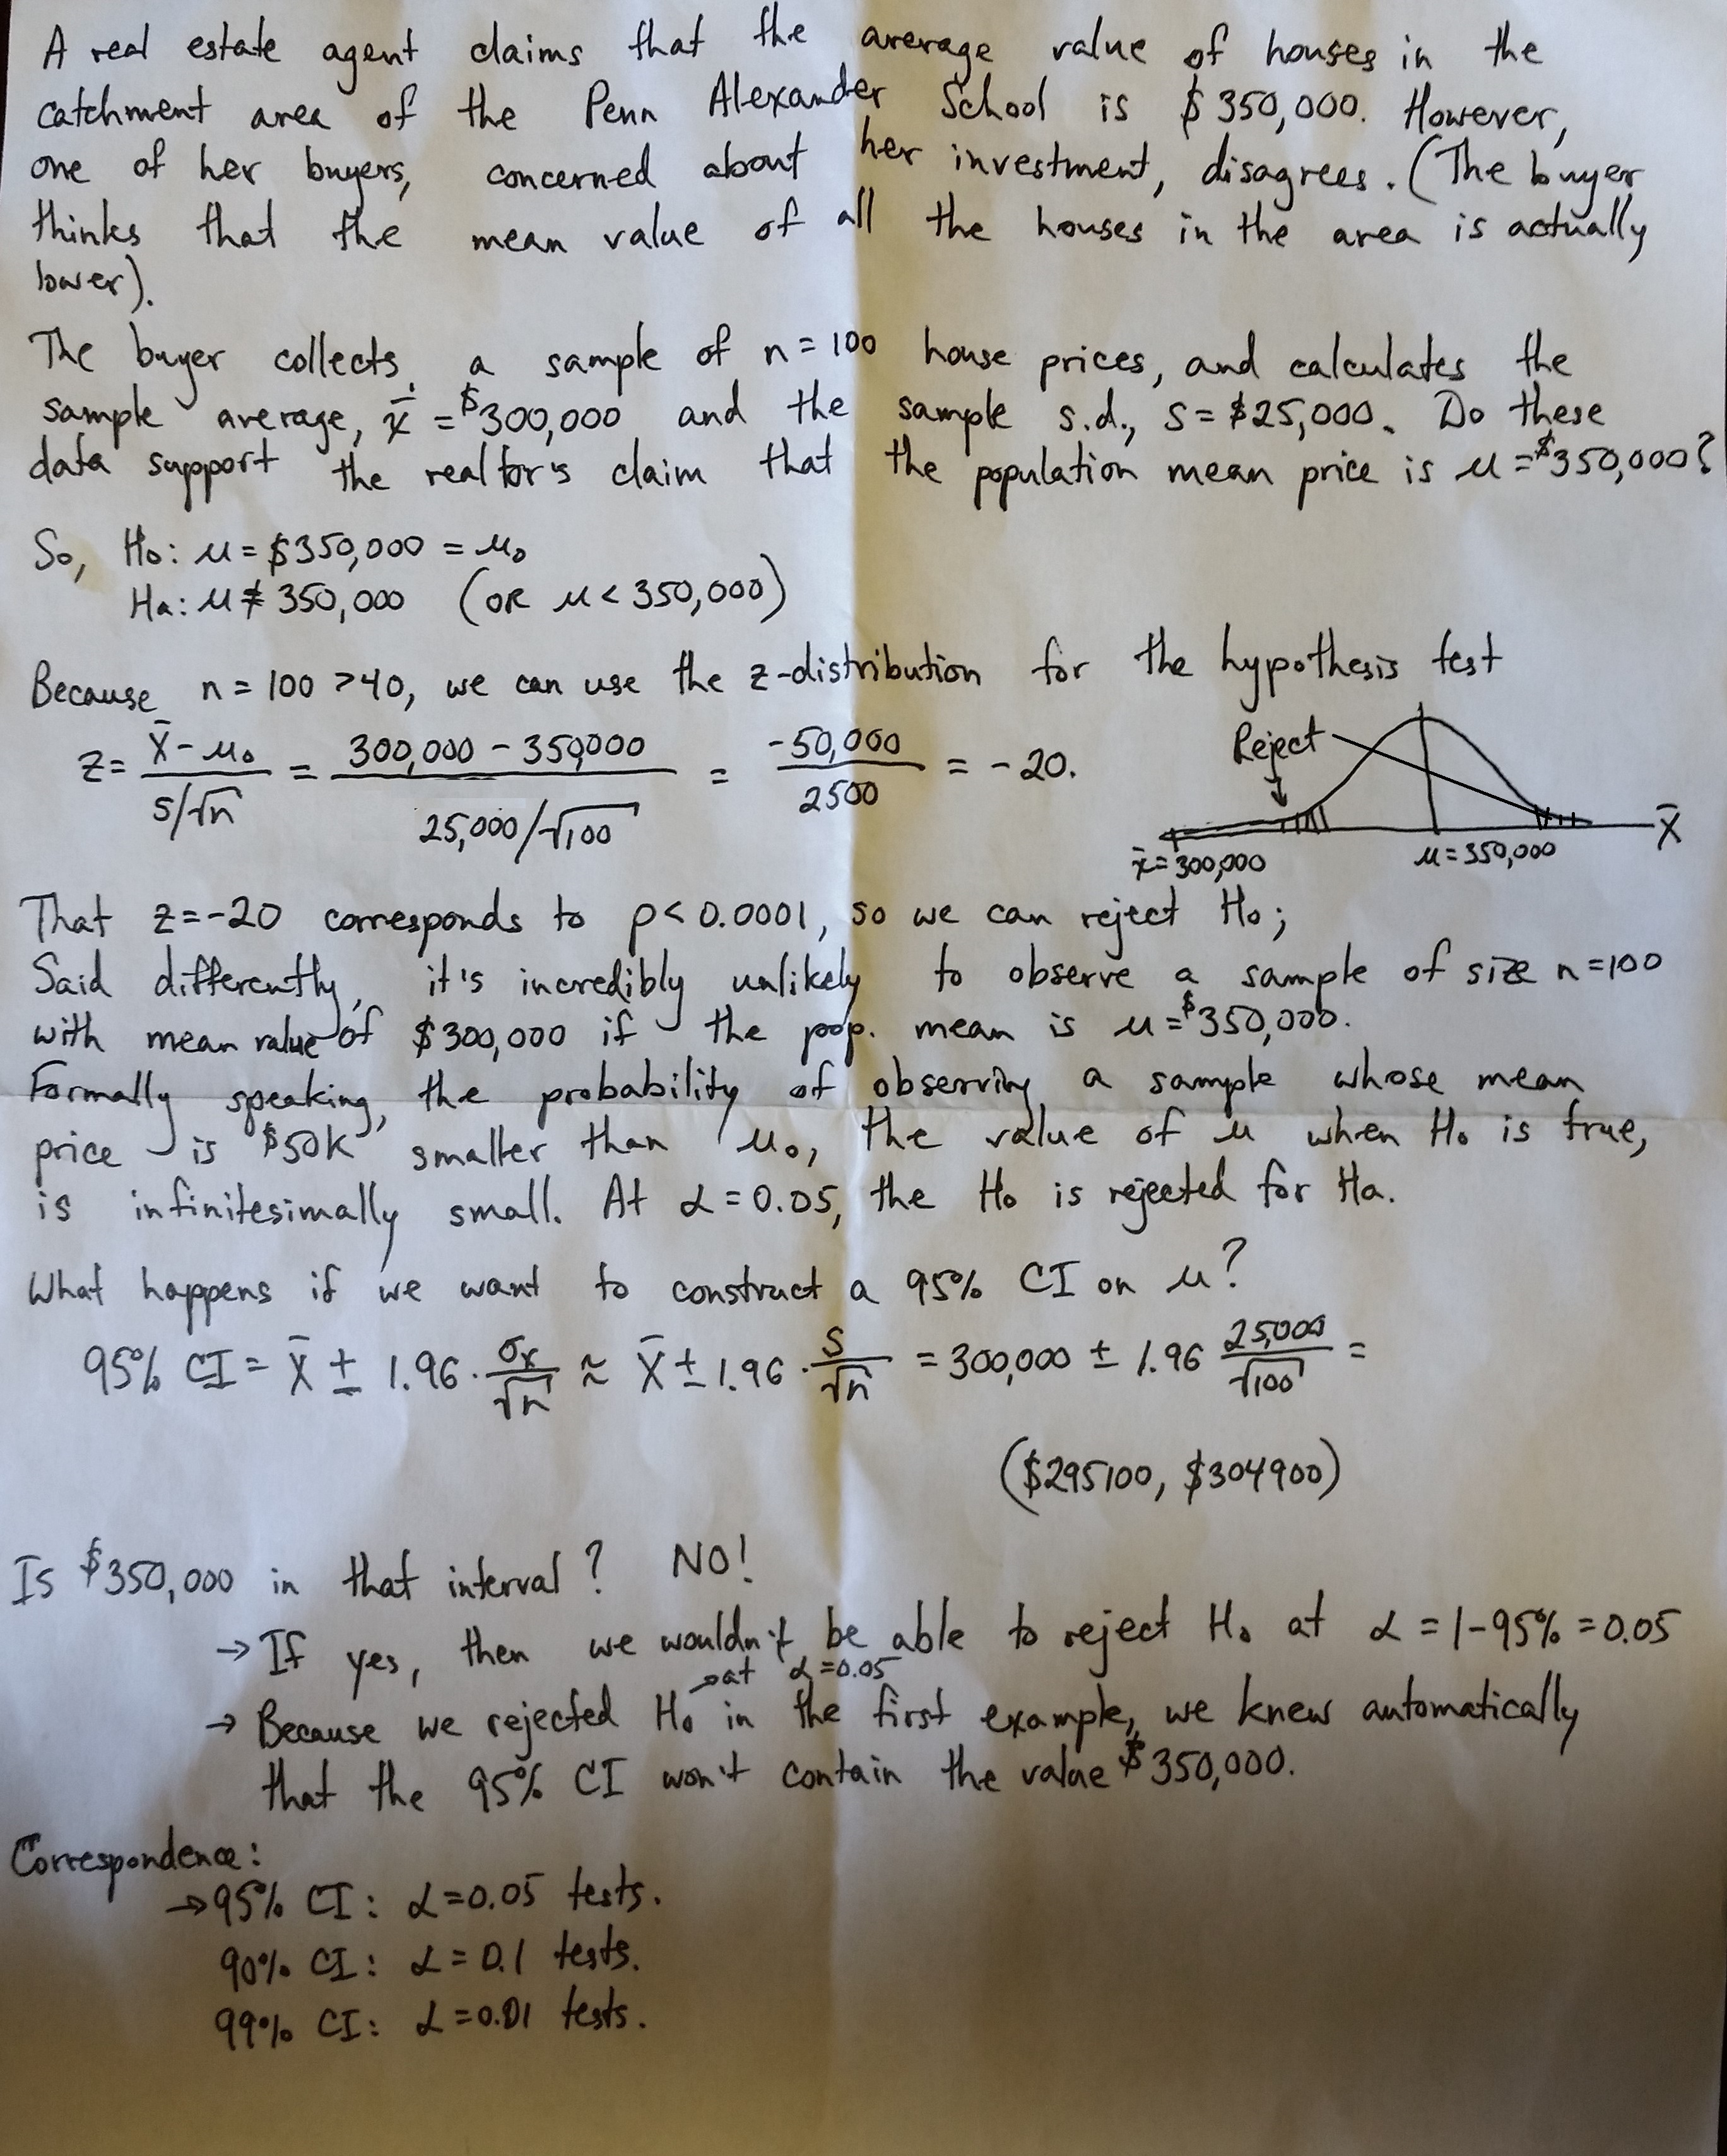 A real estate agent claims that the average value of houses in the
catchment area of the Penn Alexander School is $350,000. However,
one of her buyers, concerned about her investment, disagrees. (The buyer
thinks that the mean value of all the houses in the area is actually
lower).
The buyer collects a sample of n=100 house prices, and calculates the
sample average, x̄ = $300,000 and the sample s.d., s=$25,000. Do these
data support the realtor's claim that the population mean price is μ=$350,000?
So, H₀: μ=$350,000 = μ₀
Ha: μ≠350,000 (OR μ<350,000)
Because n=100 >40, we can use the z-distribution for the hypothesis test
z= (x̄-μ₀)/(s/√n) = (300,000 - 350,000)/(25,000/√100) = -50,000/2500 = -20.
Reject
x̄=300,000 μ=350,000 X̄
That z=-20 corresponds to p<0.0001, so we can reject H₀;
Said differently, it's incredibly unlikely to observe a sample of size n=100
with mean value of $300,000 if the pop. mean is μ=$350,000.
Formally speaking, the probability of observing a sample whose mean
price is $50K smaller than μ₀, the value of μ when H₀ is true,
is infinitesimally small. At α=0.05, the H₀ is rejected for Ha.
What happens if we want to construct a 95% CI on μ?
95% CI = X̄ ± 1.96·σx/√n ≈ X̄ ± 1.96·s/√n = 300,000 ± 1.96 25,000/√100 =
($295100, $304900)
Is $350,000 in that interval? NO!
→ If yes, then we wouldn't be able to reject H₀ at α=1-95%=0.05
→ at α=0.05
→ Because we rejected H₀ in the first example, we knew automatically
that the 95% CI won't contain the value $350,000.
Correspondence:
→ 95% CI: α=0.05 tests.
90% CI: α=0.1 tests.
99% CI: α=0.01 tests.